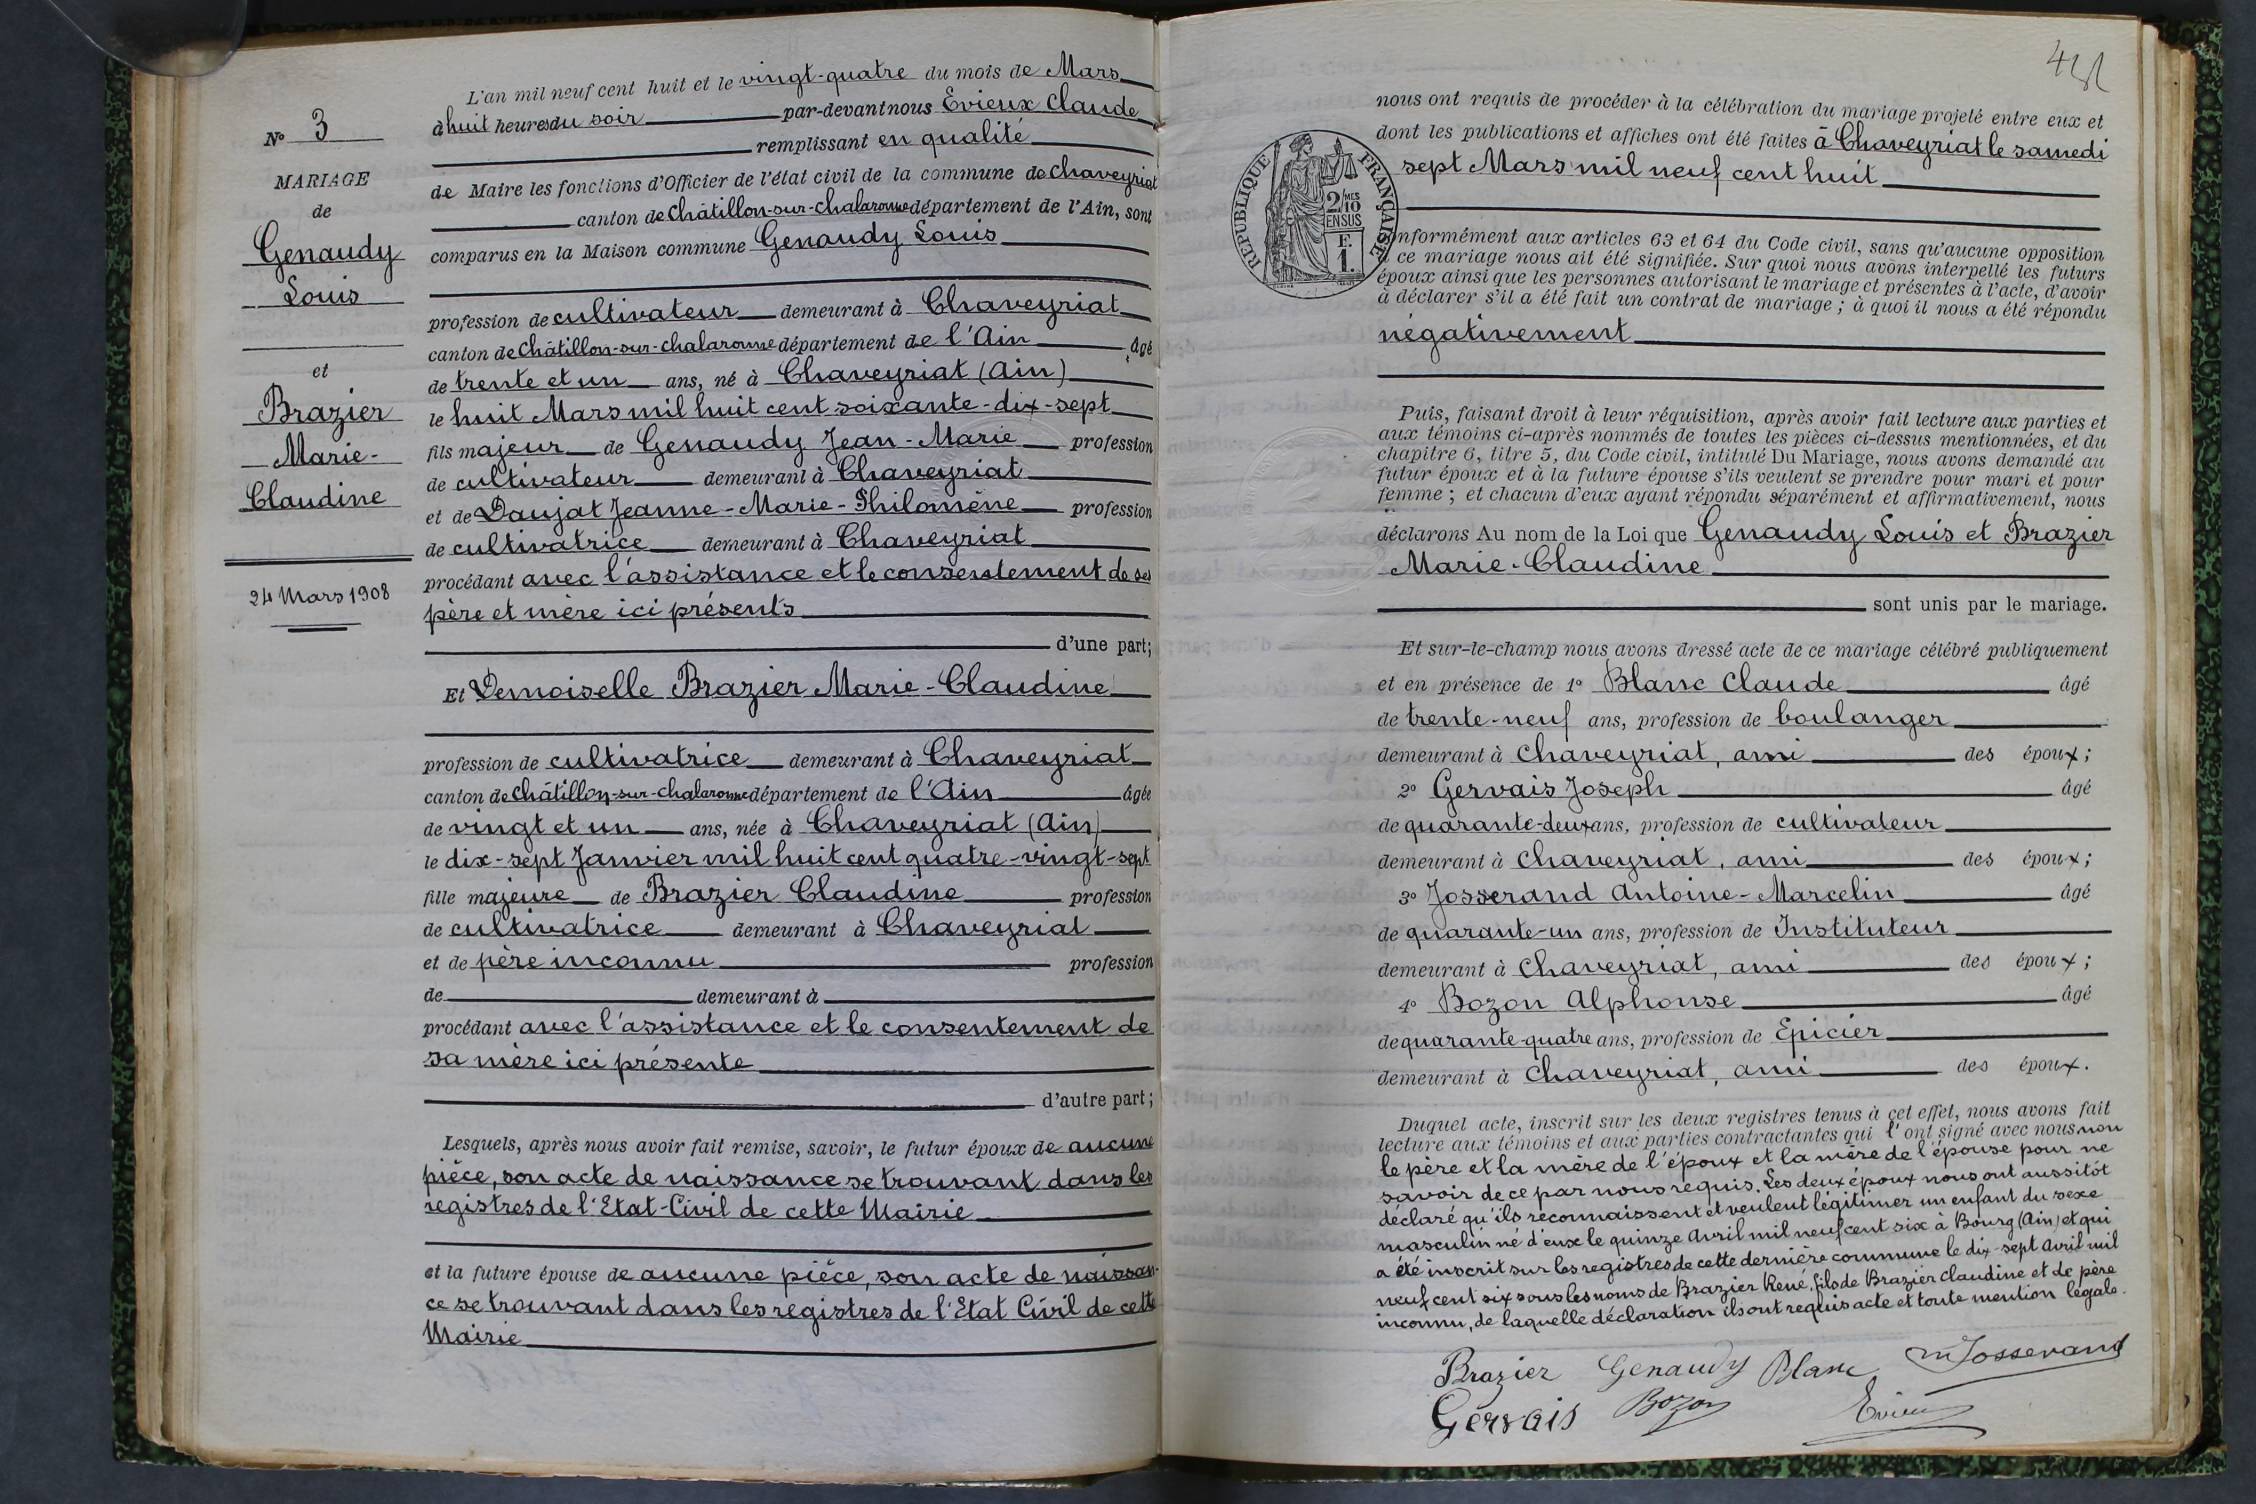 N° 3
MARIAGE
de
Genaudy
Louis
et
Brazier
Marie-
Claudine
24 Mars 1908
L'an mil neuf cent huit et le vingt-quatre du mois de Mars
à huit heures du soir par-devant nous Evieux Claude
remplissant en qualité
de Maire les fonctions d'Officier de l'état civil de la commune de Chaveyriat
canton de Châtillon-sur-Chalaronne département de l'Ain, sont
comparus en la Maison commune Genaudy Louis
profession de cultivateur demeurant à Chaveyriat
canton de Châtillon-sur-chalaronne département de l'Ain âgé
de trente et un ans, né à Chaveyriat (Ain)
le huit Mars mil huit cent soixante-dix-sept
fils majeur de Genaudy Jean-Marie profession
de cultivateur demeurant à Chaveyriat
et de Daujat Jeanne-Marie-Philomène profession
de cultivatrice demeurant à Chaveyriat
procédant avec l'assistance et le consentement de ses
père et mère ici présents
d'une part;
Et Demoiselle Brazier Marie-Claudine
profession de cultivatrice demeurant à Chaveyriat
canton de Châtillon-sur-chalaronne département de l'Ain âgée
de vingt et un ans, née à Chaveyriat (Ain)
le dix-sept Janvier mil huit cent quatre-vingt-sept
fille majeure de Brazier Claudine profession
de cultivatrice demeurant à Chaveyriat
et de père inconnu profession
de demeurant à
procédant avec l'assistance et le consentement de
sa mère ici présente
d'autre part;
Lesquels, après nous avoir fait remise, savoir, le futur époux de aucune
pièce, son acte de naissance se trouvant dans les
registres de l'Etat-Civil de cette Mairie
et la future épouse de aucune pièce, son acte de naissan-
ce se trouvant dans les registres de l'Etat Civil de cette
Mairie
nous ont requis de procéder à la célébration du mariage projeté entre eux et
dont les publications et affiches ont été faites à Chaveyriat le samedi
sept Mars mil neuf cent huit
RÉPUBLIQUE FRANÇAISE
2/10 MES
EN SUS
F.
1.
onformément aux articles 63 et 64 du Code civil, sans qu'aucune opposition
à ce mariage nous ait été signifiée. Sur quoi nous avons interpellé les futurs
époux ainsi que les personnes autorisant le mariage et présentes à l'acte, d'avoir
à déclarer s'il a été fait un contrat de mariage ; à quoi il nous a été répondu
négativement
Puis, faisant droit à leur réquisition, après avoir fait lecture aux parties et
aux témoins ci-après nommés de toutes les pièces ci-dessus mentionnées, et du
chapitre 6, titre 5, du Code civil, intitulé Du Mariage, nous avons demandé au
futur époux et à la future épouse s'ils veulent se prendre pour mari et pour
femme ; et chacun d'eux ayant répondu séparément et affirmativement, nous
déclarons Au nom de la Loi que Genaudy Louis et Brazier
Marie-Claudine
sont unis par le mariage.
Et sur-le-champ nous avons dressé acte de ce mariage célébré publiquement
et en présence de 1° Blanc Claude âgé
de trente-neuf ans, profession de boulanger
demeurant à Chaveyriat, ami des époux;
2° Gervais Joseph âgé
de quarante-deux ans, profession de cultivateur
demeurant à Chaveyriat, ami des époux;
3° Josserand Antoine-Marcelin âgé
de quarante-un ans, profession de Instituteur
demeurant à Chaveyriat, ami des époux;
4° Bozon Alphonse âgé
de quarante-quatre ans, profession de Epicier
demeurant à Chaveyriat, ami des époux.
Duquel acte, inscrit sur les deux registres tenus à cet effet, nous avons fait
lecture aux témoins et aux parties contractantes qui l'ont signé avec nous non
le père et la mère de l'époux et la mère de l'épouse pour ne
savoir de ce par nous requis. Les deux époux nous ont aussitôt
déclaré qu'ils reconnaissent et veulent légitimer un enfant du sexe
masculin né d'eux le quinze Avril mil neuf cent six à Bourg (Ain) et qui
a été inscrit sur les registres de cette dernière commune le dix-sept Avril mil
neuf cent six sous les noms de Brazier René, fils de Brazier Claudine et de père
inconnu, de laquelle déclaration ils ont requis acte et toute mention légale.
Brazier Genaudy Blanc M Josserand
Gervais Bozon Evieux